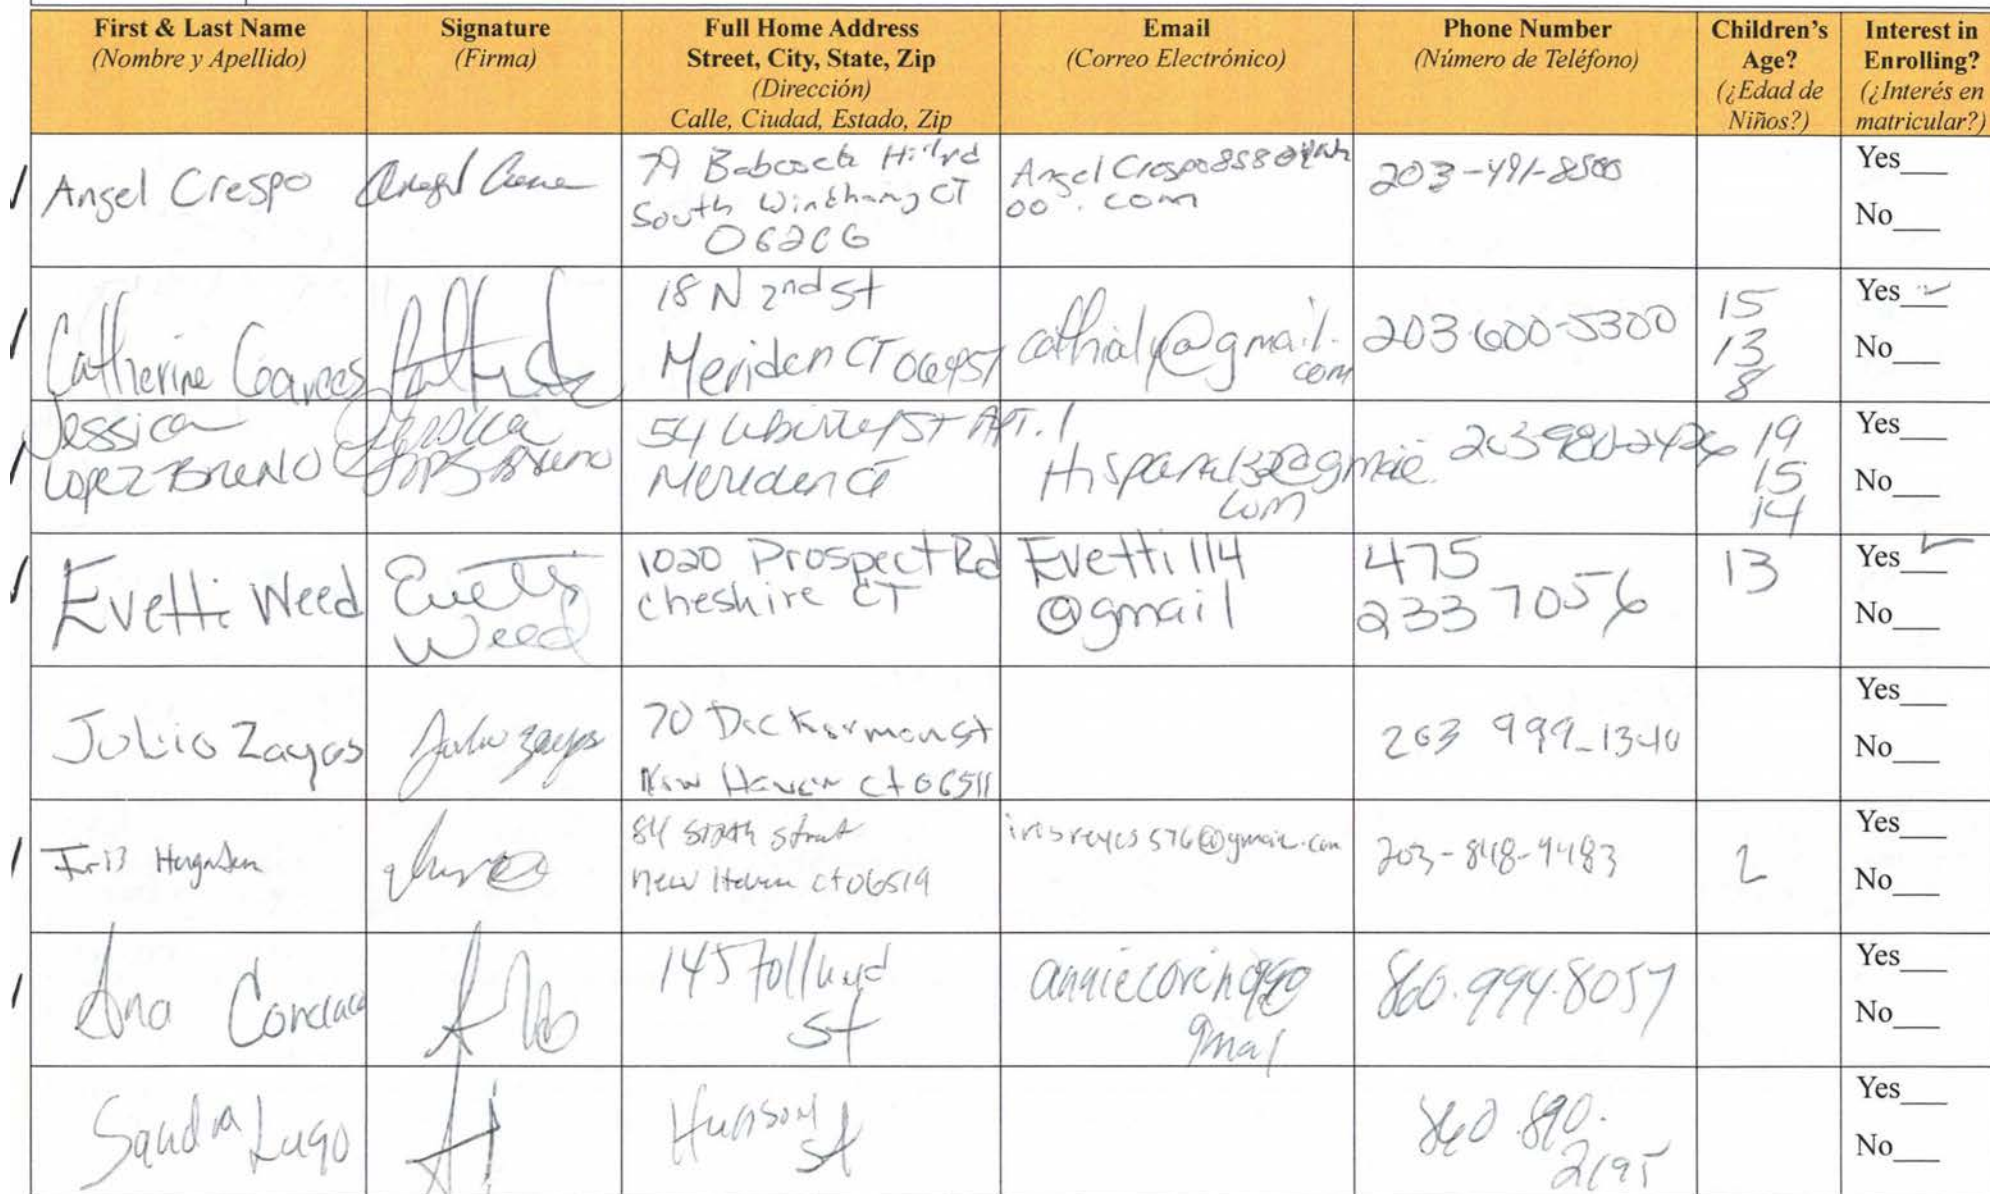 First & Last Name
(Nombre y Apellido)
Signature
(Firma)
Full Home Address
Street, City, State, Zip
(Dirección)
Calle, Ciudad, Estado, Zip
Email
(Correo Electrónico)
Phone Number
(Número de Teléfono)
Children's
Age?
(¿Edad de
Niños?)
Interest in
Enrolling?
(¿Interés en
matricular?)
Angel Crespo
79 Babcock Hill rd
South Windham, CT
Angel Crespo858@yah
oo.com
203-491-8500
Yes
No
Catherine Garces
18 N 2nd St
Meriden CT 06457
@gmail.
com
203-600-5300
15
13
8
Yes
No
Jessica
Lopez-Bueno
Jessica
54 St APT. 1
Meriden CT
com
19
15
14
Yes
No
Evetti Weed
Evetti
Weed
1020 Prospect Rd
Cheshire CT
Evetti114
@gmail
475
233 7056
13
Yes
No
Julio Zayas
Julio Zayas
70
New Haven Ct 06511
203 999-1340
Yes
No
84 Street
New Haven ct 06519
irisreyes576@gmail.com
203-848-9483
2
Yes
No
Ana
145 Tolland
St
860.994.8057
Yes
No
Sandra Lugo
St
860.890.
2195
Yes
No